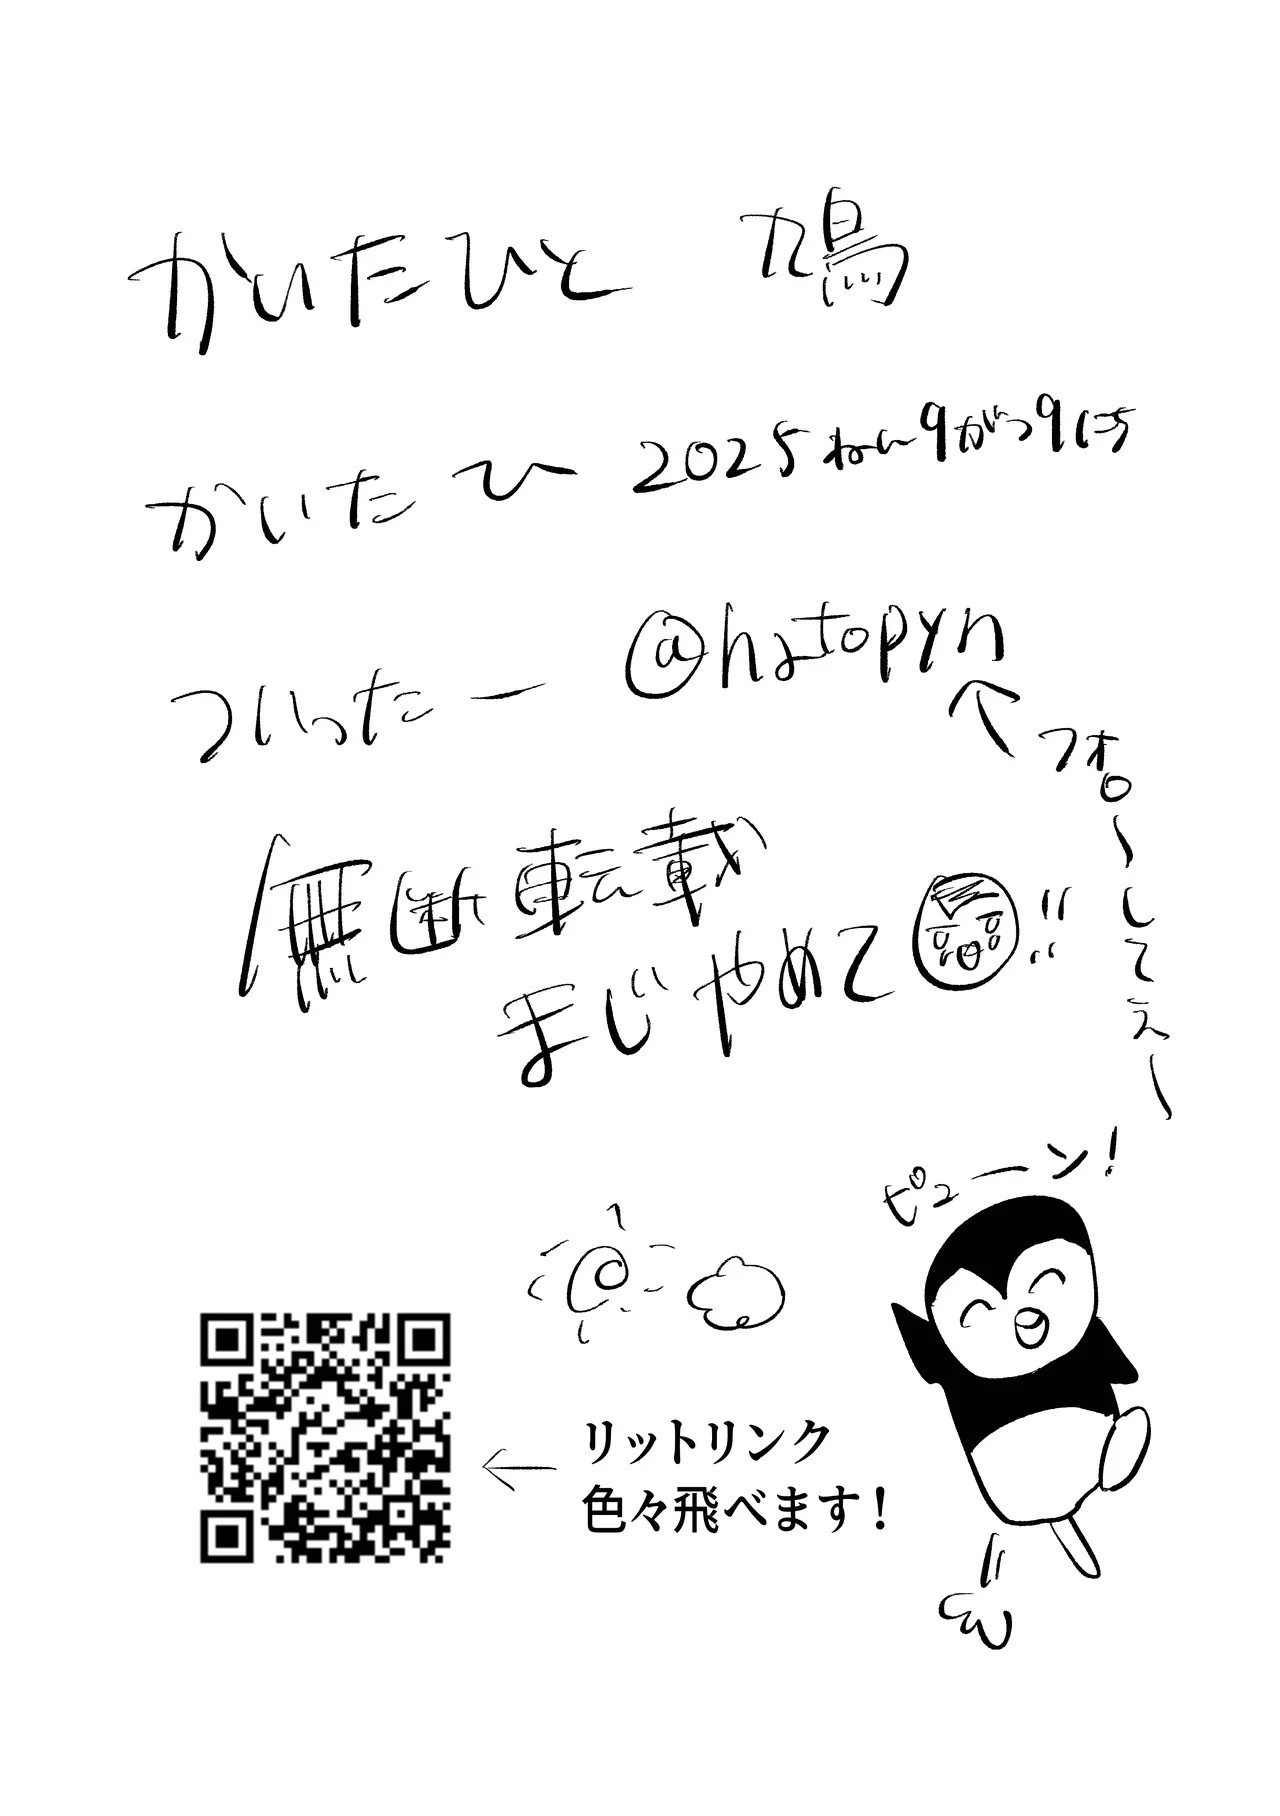 かいたひと 鳩
かいたひ 2025ねん9がつ9にち
ついったー @hatopyn
↑フォロ〜してえ〜
無断転載
まじやめて!!
ピューン!
← リットリンク
色々飛べます!